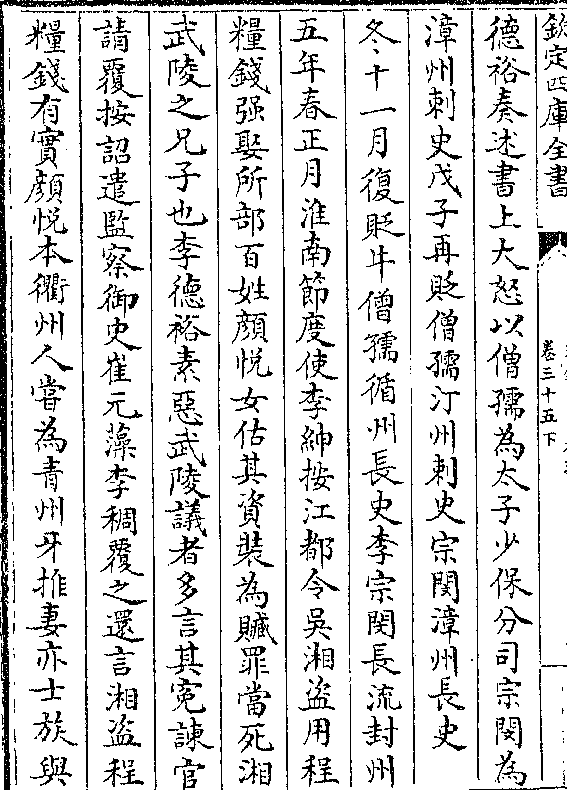 欽定四庫全書
卷三十五下
德裕奏述書上大怒以僧孺為太子少保分司宗閔為
漳州刺史戊子再貶僧孺汀州刺史宗閔漳州長史
冬十一月復貶牛僧孺循州長史李宗閔長流封州
五年春正月淮南節度使李紳按江都令吳湘盜用程
糧錢强娶所部百姓顔悅女估其資裝為贓罪當死湘
武陵之兄子也李德裕素惡武陵議者多言其寃諫官
請覆按詔遣監察御史崔元藻李稠覆之還言湘盜程
糧錢有實顔悅本衢州人嘗為青州牙推妻亦士族與